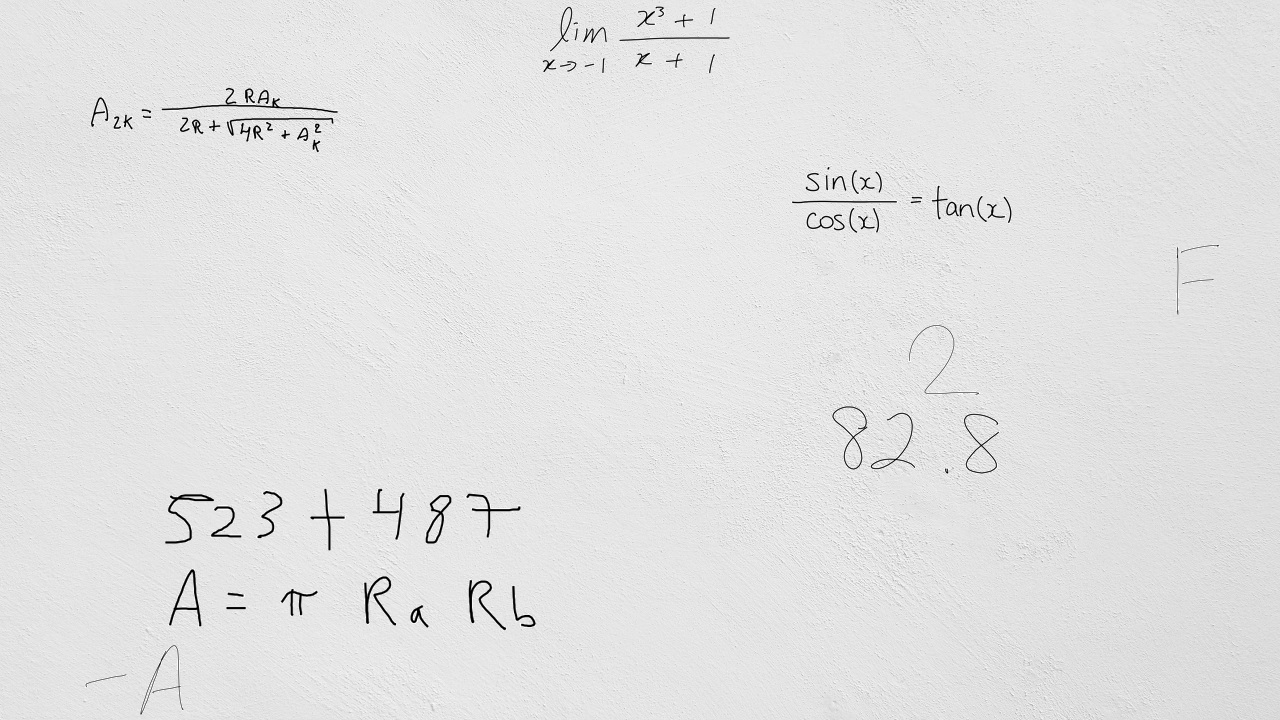 \lim_{x \to -1} \frac{x^3 + 1}{x + 1}
A_{2K} = \frac{2RA_K}{2R + \sqrt{4R^2 + A_K^2}}
\frac{sin(x)}{cos(x)} = tan(x)
F
2
82.8
523 + 487
A = π R_a R_b
-A